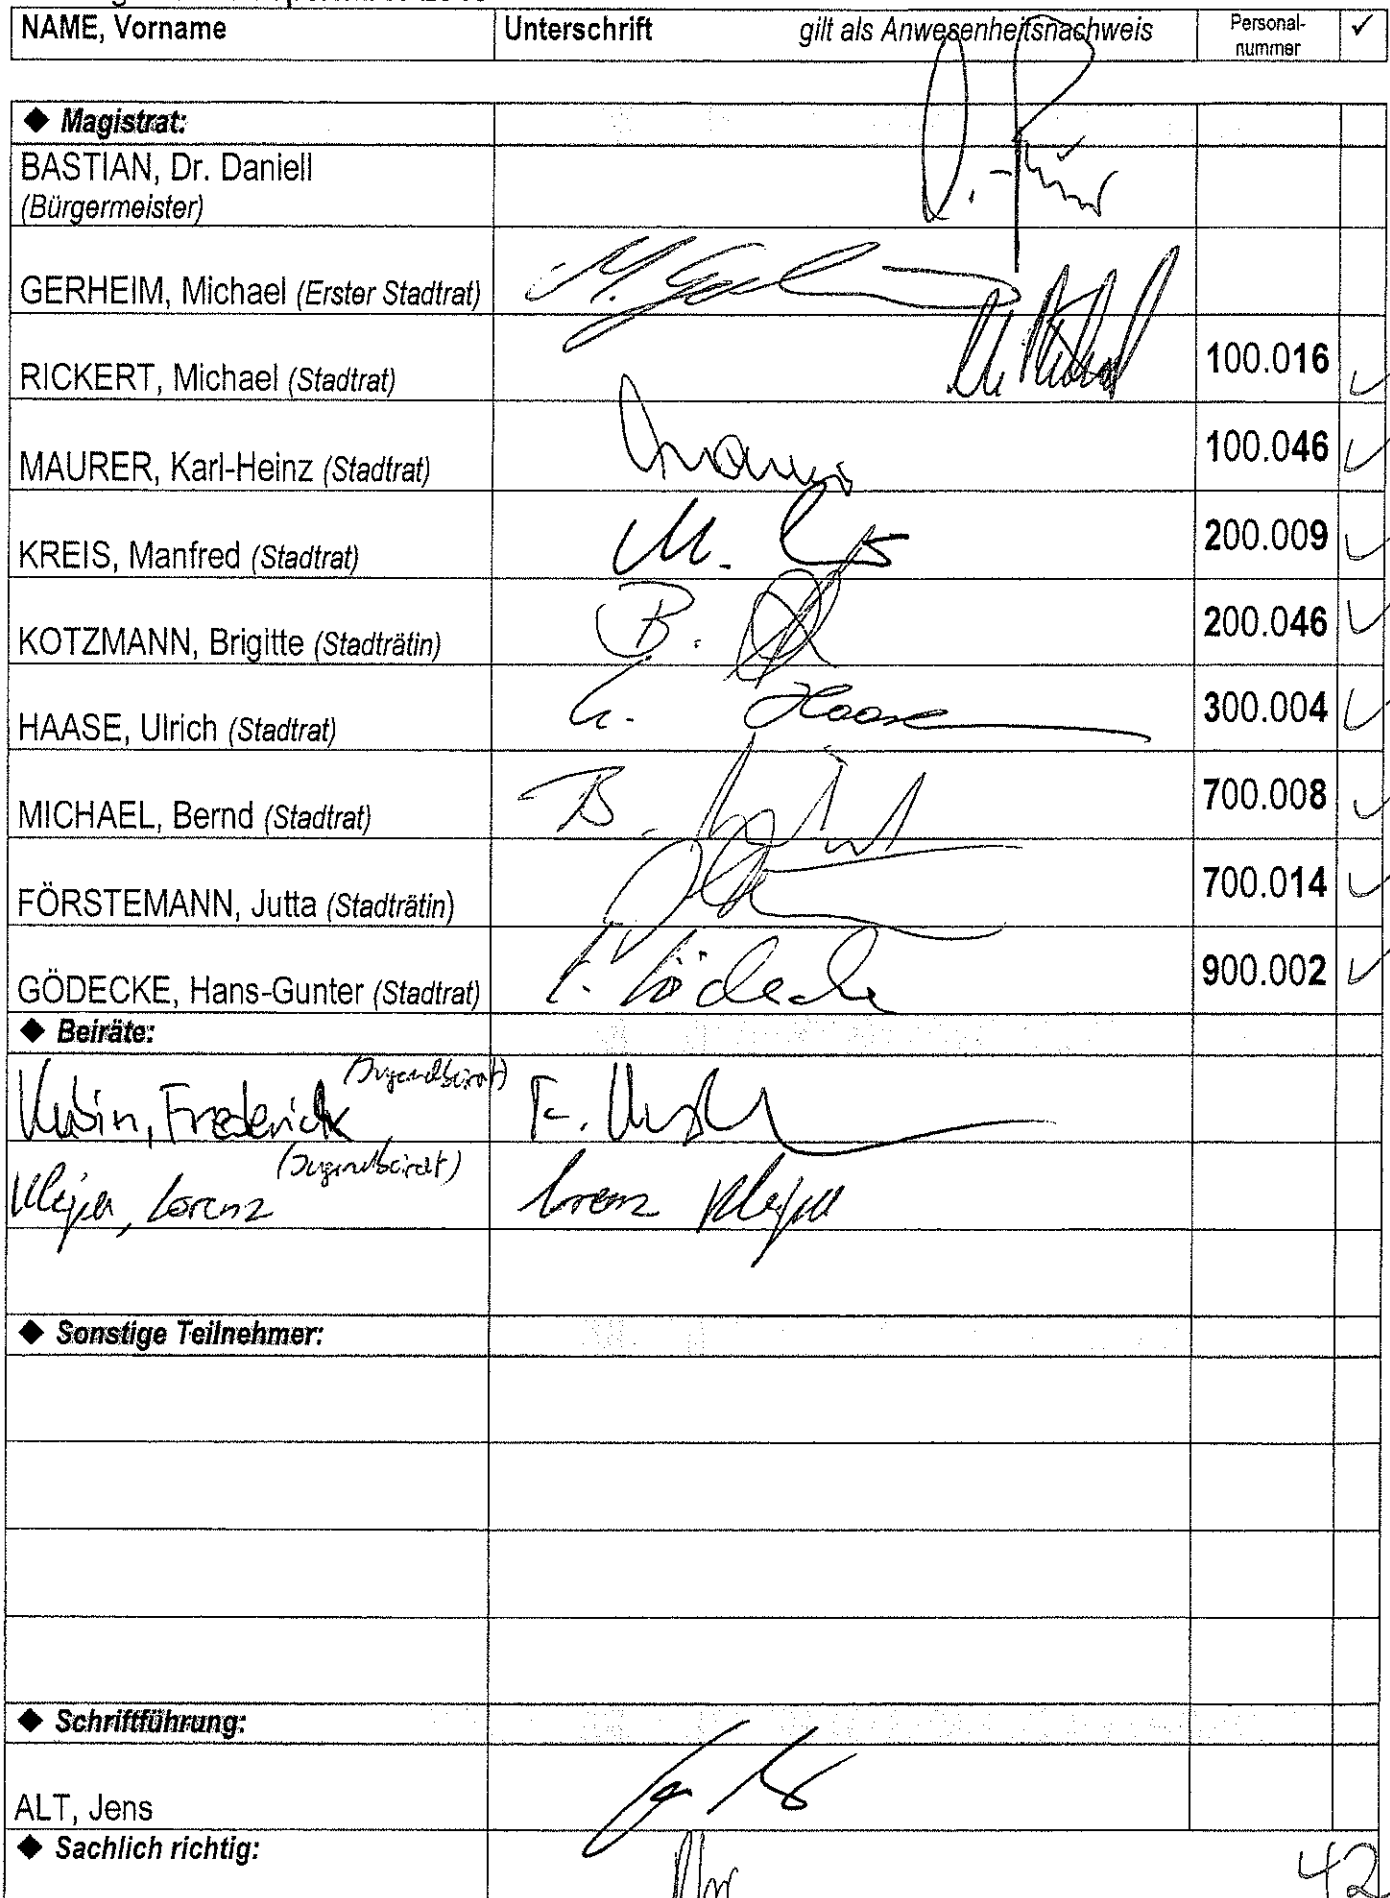 NAME, Vorname Unterschrift gilt als Anwesenheitsnachweis Personal-nummer ✓
◆ Magistrat:
BASTIAN, Dr. Daniell
(Bürgermeister)
GERHEIM, Michael (Erster Stadtrat)
RICKERT, Michael (Stadtrat) 100.016 ✓
MAURER, Karl-Heinz (Stadtrat) 100.046 ✓
KREIS, Manfred (Stadtrat) M. 200.009 ✓
KOTZMANN, Brigitte (Stadträtin) B. 200.046 ✓
HAASE, Ulrich (Stadtrat) Haase 300.004 ✓
MICHAEL, Bernd (Stadtrat) B. 700.008 ✓
FÖRSTEMANN, Jutta (Stadträtin) 700.014 ✓
GÖDECKE, Hans-Gunter (Stadtrat) Gödecke 900.002 ✓
◆ Beiräte:
Kubin, Frederick (Jugendbeirat) F.
Lorenz (Jugendbeirat) Lorenz
◆ Sonstige Teilnehmer:
◆ Schriftführung:
ALT, Jens
◆ Sachlich richtig: 42